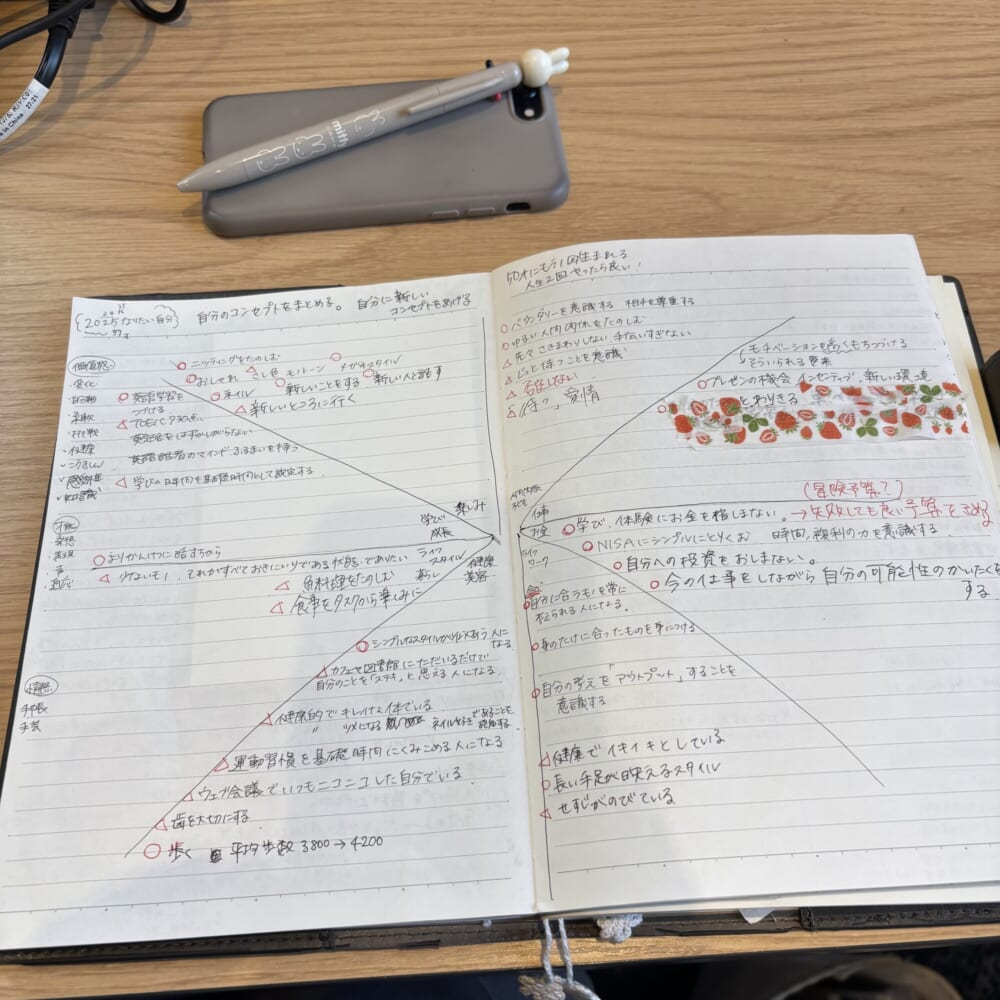 in China 27.21
miffy
2025なりたい自分
自分のコンセプトをまとめる。 自分に新しい
コンセプトをあげる
価値感
変化
柔軟
挑戦
健康
こうきしん
感謝
知識
ニッティングをたのしむ
おしゃれ さし色 モノトーン メガネスタイル
ネイル 新しいことをする 新しい人と話す
新しいところに行く
英語学習を
つづける
TOEIC 730点、
英会話をはずかしがらない
英語話者のマインド、ふるまいを持つ
学びの時間を基礎時間として設定する
学び 楽しみ
成長
才能
発想
表現
声
適応
よりかんけつに話すちから
少ないモノ、それがすべておきにいりである状態でありたい
ライフ
スタイル
暮らし
健康
美容
魚料理をたのしむ
食事をタスクから楽しみに
シンプルなスタイルが似あう人に
なる
カフェや図書館にただいるだけで
自分のことを「ステキ」と思える人になる
情熱
手帳
手芸
健康的でキレイな体でいる
〃 ツメになる ネイル好きであることを
運動習慣を基礎時間にくみこめる人になる
ウェブ会議でいつもニコニコした自分でいる
歯を大切にする
歩く 平均歩数 3800→4200
50才にもう1回生まれる
人生2回やったら良い!
バウンダリーを意識する 相手を尊重する
ゆるい人間関係をたのしむ
先々さきまわりしない 手伝いすぎない
じっと待つことを意識
「待つ」愛情
モチベーションを高くもちつづけ
られる要素
プレゼンの機会 インセンティブ、新しい環境
とわりきる
人間関係
仕事
お金
(冒険予算?)
学び、体験にお金を惜しまない。→失敗しても良い予算をきめる
NISAにシンプルにとりくむ 時間、複利の力を意識する
自分への投資をおしまない。
今の仕事をしながら自分の可能性のかいたくを
する
ライフ
ワーク
自分に合うモノを常に
考えられる人になる。
身のたけに合ったものを身につける
自分の考えを「アウトプット」することを
意識する
健康でイキイキとしている
長い手足が映えるスタイル
せすじがのびている